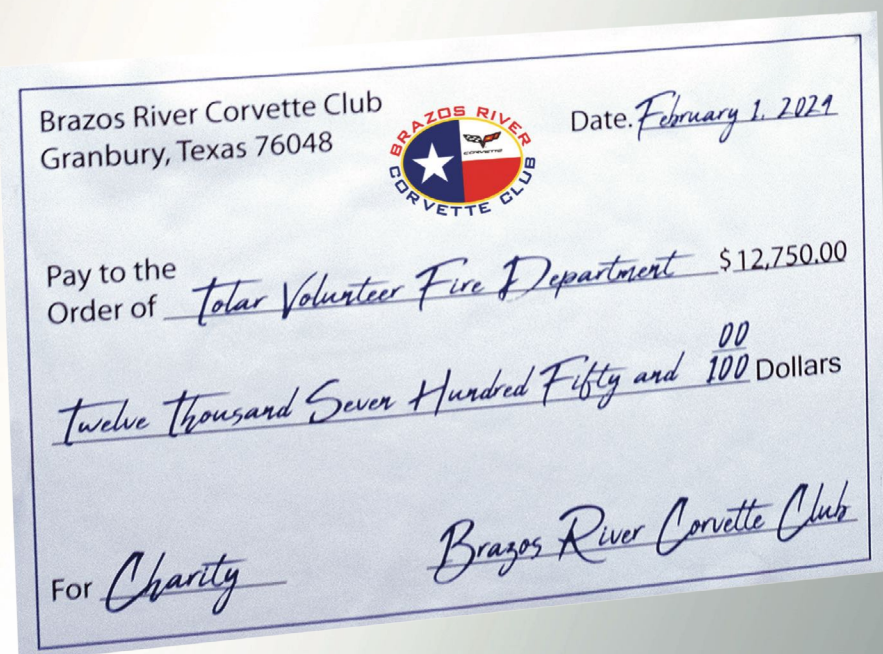 Brazos River Corvette Club
Granbury, Texas 76048
BRAZOS RIVER
CORVETTE
CORVETTE CLUB
Date. February 1, 2024
Pay to the
Order of Tolar Volunteer Fire Department $12,750.00
Twelve Thousand Seven Hundred Fifty and 00/100 Dollars
For Charity
Brazos River Corvette Club